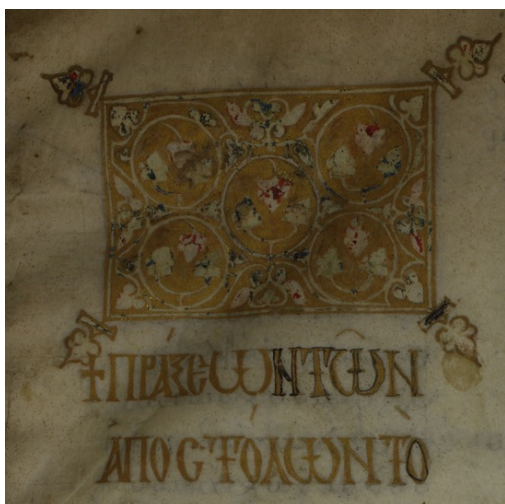 +ΠΡΑΞΕΩΝΤΩΝ
ΑΠΟϹΤΟΛΩΝΤΟ